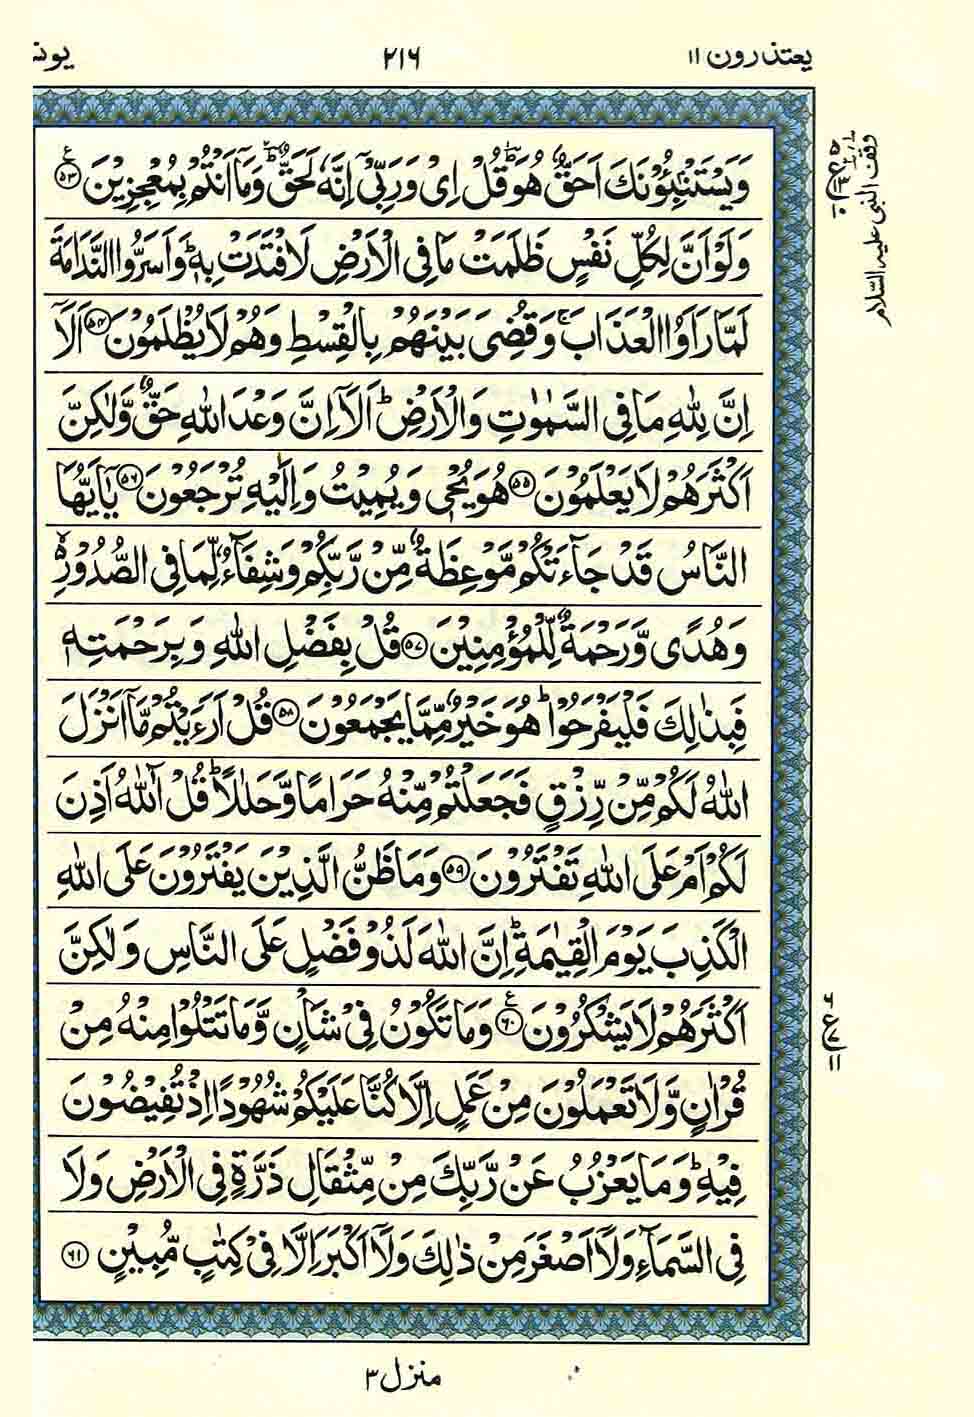 یعتذرون ۱۱ ۲۱۶ یونس
وَيَسْتَنْۢبِـُٔوْنَكَ اَحَقٌّ هُوَؕ قُلْ اِیْ وَرَبِّیْۤ اِنَّهٗ لَحَقٌّ ۚؕ وَمَاۤ اَنْتُمْ بِمُعْجِزِيْنَ ۵۳
وَلَوْ اَنَّ لِكُلِّ نَفْسٍ ظَلَمَتْ مَا فِی الْاَرْضِ لَافْتَدَتْ بِهٖؕ وَاَسَرُّوا النَّدَامَةَ
لَمَّا رَاَوُا الْعَذَابَۚ وَقُضِیَ بَيْنَهُمْ بِالْقِسْطِ وَهُمْ لَا يُظْلَمُوْنَ ۵۴ اَلَاۤ
اِنَّ لِلّٰهِ مَا فِی السَّمٰوٰتِ وَالْاَرْضِؕ اَلَاۤ اِنَّ وَعْدَ اللّٰهِ حَقٌّ وَّلٰكِنَّ
اَكْثَرَهُمْ لَا يَعْلَمُوْنَ ۵۵ هُوَ يُحْیٖ وَيُمِيْتُ وَاِلَيْهِ تُرْجَعُوْنَ ۵۶ يٰۤاَيُّهَا
النَّاسُ قَدْ جَآءَتْكُمْ مَّوْعِظَةٌ مِّنْ رَّبِّكُمْ وَشِفَآءٌ لِّمَا فِی الصُّدُوْرِ ۙ
وَهُدًی وَّرَحْمَةٌ لِّلْمُؤْمِنِيْنَ ۵۷ قُلْ بِفَضْلِ اللّٰهِ وَبِرَحْمَتِهٖ
فَبِذٰلِكَ فَلْيَفْرَحُوْاؕ هُوَ خَيْرٌ مِّمَّا يَجْمَعُوْنَ ۵۸ قُلْ اَرَءَيْتُمْ مَّاۤ اَنْزَلَ
اللّٰهُ لَكُمْ مِّنْ رِّزْقٍ فَجَعَلْتُمْ مِّنْهُ حَرَامًا وَّحَلٰلًاؕ قُلْ آٰللّٰهُ اَذِنَ
لَكُمْ اَمْ عَلَی اللّٰهِ تَفْتَرُوْنَ ۵۹ وَمَا ظَنُّ الَّذِيْنَ يَفْتَرُوْنَ عَلَی اللّٰهِ
الْكَذِبَ يَوْمَ الْقِيٰمَةِؕ اِنَّ اللّٰهَ لَذُوْ فَضْلٍ عَلَی النَّاسِ وَلٰكِنَّ
اَكْثَرَهُمْ لَا يَشْكُرُوْنَ ۶۰ وَمَا تَكُوْنُ فِیْ شَاْنٍ وَّمَا تَتْلُوْا مِنْهُ مِنْ
قُرْاٰنٍ وَّلَا تَعْمَلُوْنَ مِنْ عَمَلٍ اِلَّا كُنَّا عَلَيْكُمْ شُهُوْدًا اِذْ تُفِيْضُوْنَ
فِيْهِؕ وَمَا يَعْزُبُ عَنْ رَّبِّكَ مِنْ مِّثْقَالِ ذَرَّةٍ فِی الْاَرْضِ وَلَا
فِی السَّمَآءِ وَلَاۤ اَصْغَرَ مِنْ ذٰلِكَ وَلَاۤ اَكْبَرَ اِلَّا فِیْ كِتٰبٍ مُّبِيْنٍ ۶۱
وقف النبی علیہ السّلام
۶
ع ۷
۱۱
منزل ۳